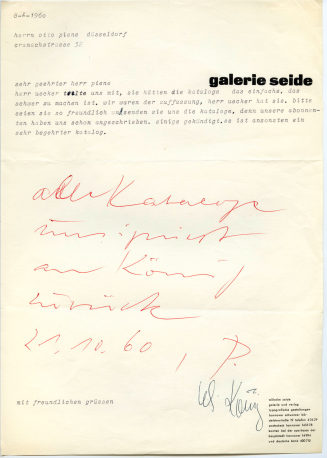 8.8.1960
herrn otto piene düsseldorf
galerie seide
sehr geehrter herr piene
herr uecker teilte uns mit, sie hätten die kataloge das einfache, das
schwer zu machen ist. wir waren der auffassung, herr uecker hat sie. bitte
seien sie so freundlich und senden sie uns die kataloge, denn unsere abonnen-
ten haben uns schon angeschrieben. einige gekündigt. es ist ansonsten ein
sehr begehrter katalog.
alle Kataloge
an König
zurück
21.10.60, P.
mit freundlichen grüssen
wilhelm seide
galerie und verlag
typografische gestaltungen